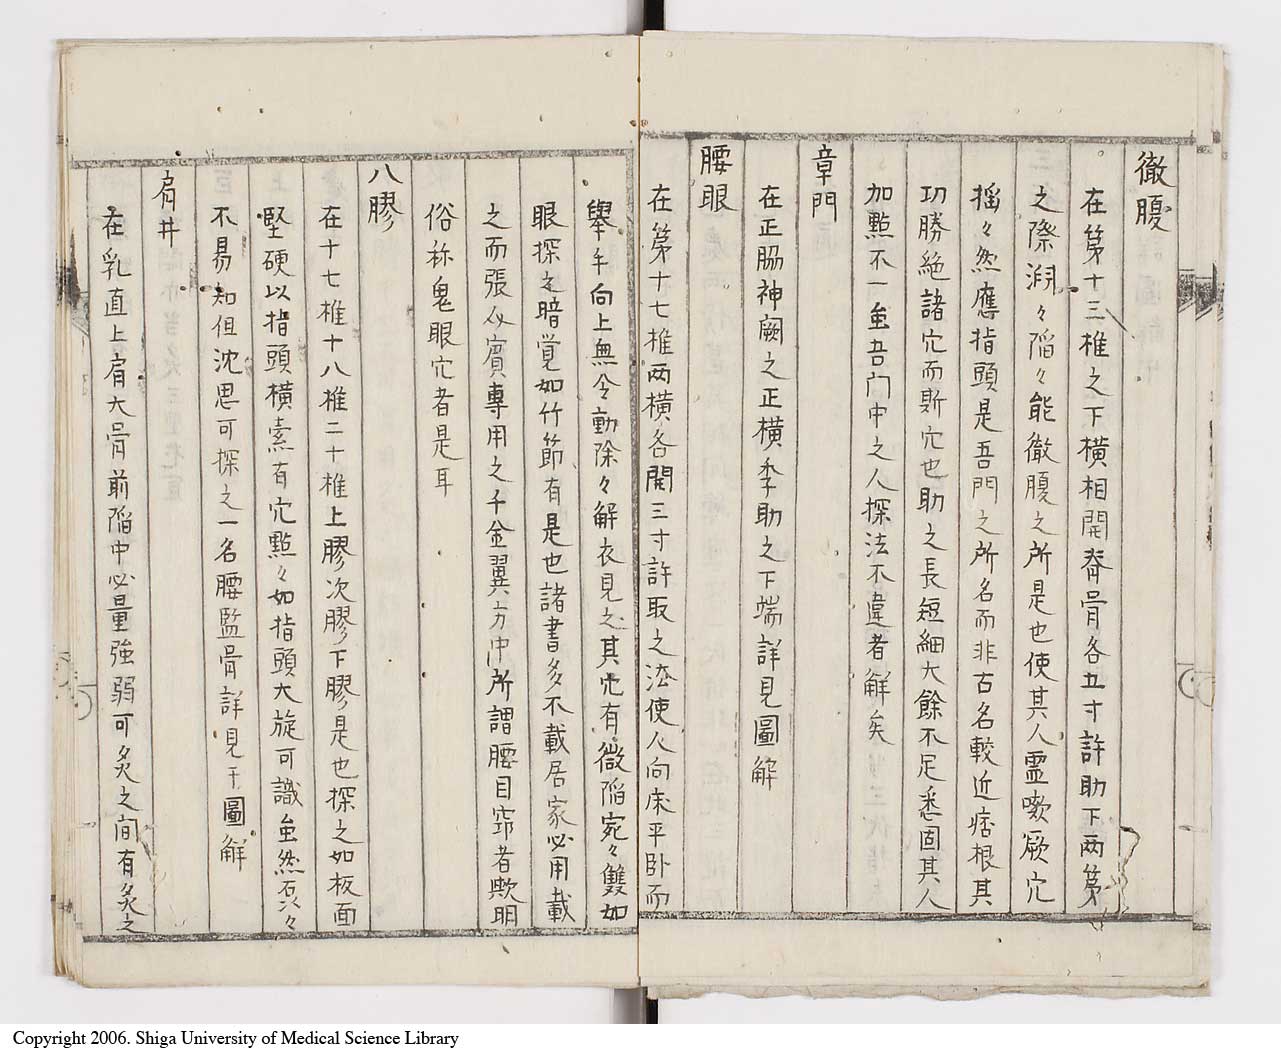 徹腹
在第十三椎之下橫相開脊骨各五寸許助下两第
之際洞々陷々能徹腹之所是也使其人霊嗽厥穴
搖々然應指頭是吾門之所名而非古名較近痞根其
功勝絶諸穴而斯穴也助之長短細大餘不足悉固其人
加點不一虽吾门中之人探法不違者解矣
章門
在正脇神闕之正橫季助之下端詳見圖解
腰眼
在第十七椎两橫各開三寸許取之法使人向床平卧而
擧手向上無令動除々解衣見之其穴有微陷宛々雙如
眼探之暗覚如竹節有是也諸書多不載居家必用載
之而張介賓專用之千金翼方中所謂腰目窌者欤明
俗称鬼眼穴者是耳
八膠
在十七椎十八椎二十椎上膠次膠下膠是也探之如板面
堅硬以指頭橫索有穴點々如指頭大旋可識虽然
不易知但沈思可探之一名腰監骨詳見于圖解
肩井
在乳直上肩大骨前陷中必量強弱可灸之间有灸之
Copyright 2006. Shiga University of Medical Science Library